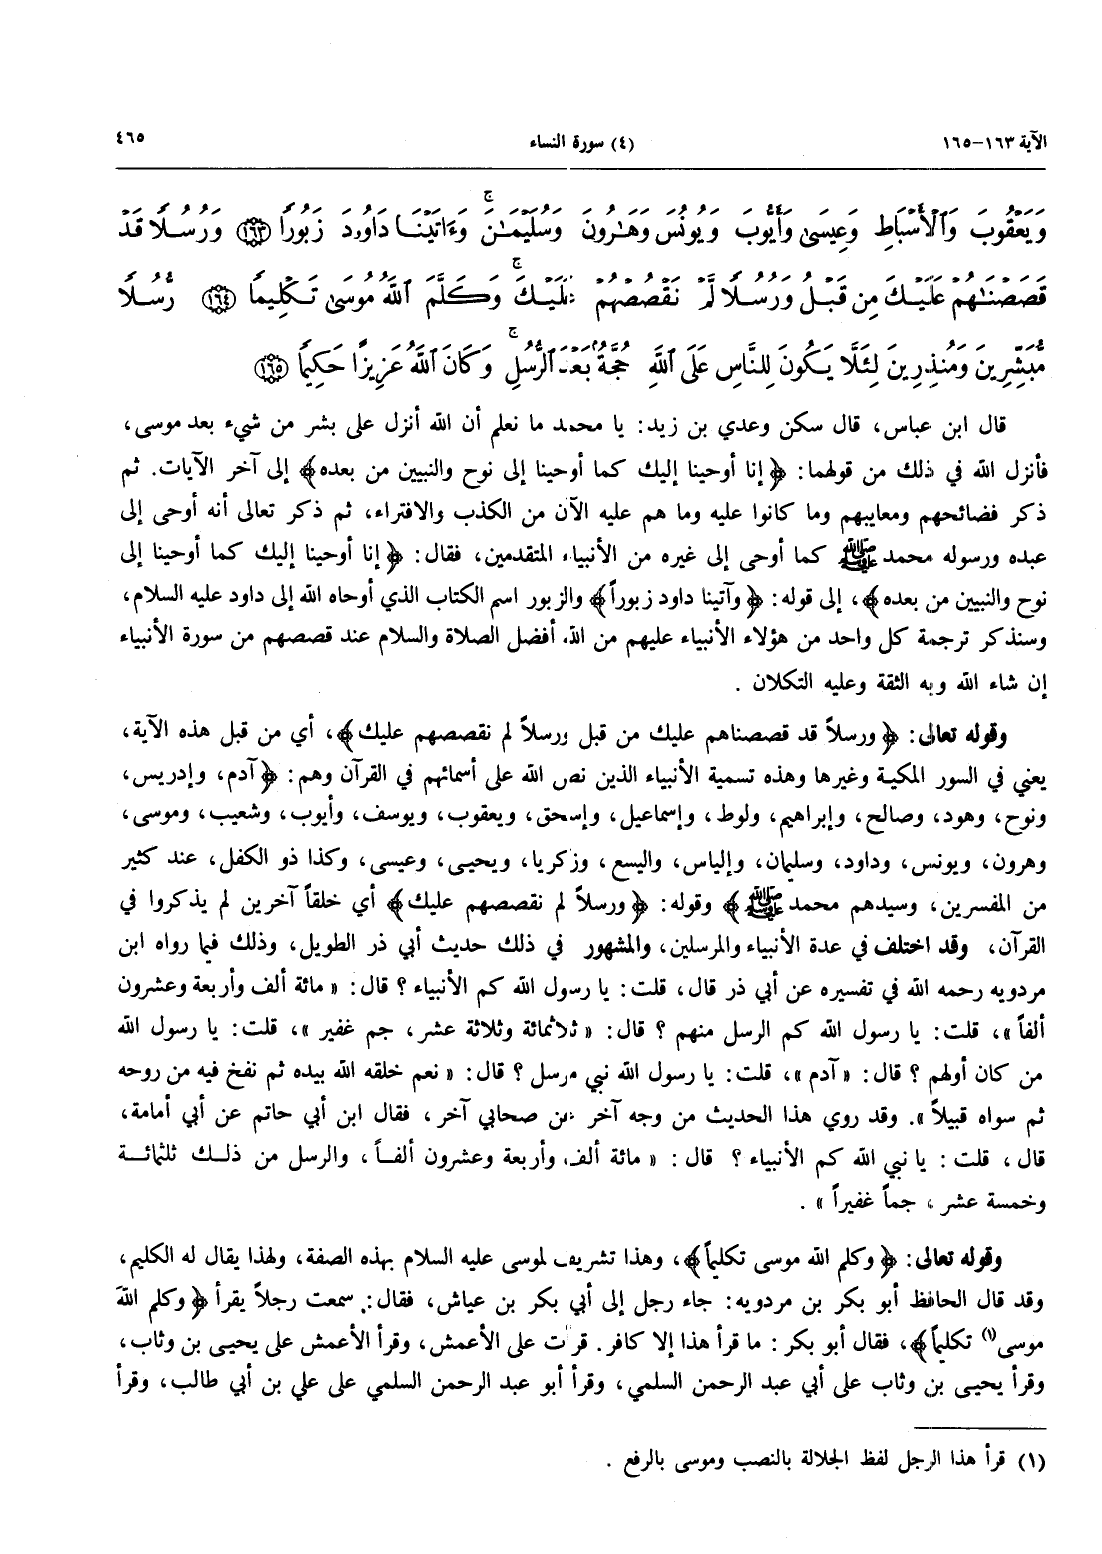 الآية ١٦٣-١٦٥ (٤) سورة النساء ٤٦٥
وَيَعْقُوبَ وَٱلْأَسْبَاطِ وَعِيسَىٰ وَأَيُّوبَ وَيُونُسَ وَهَـٰرُونَ وَسُلَيْمَـٰنَ ۚ وَءَاتَيْنَا دَاوُۥدَ زَبُورًا ١٦٣ وَرُسُلًا قَدْ
قَصَصْنَـٰهُمْ عَلَيْكَ مِن قَبْلُ وَرُسُلًا لَّمْ نَقْصُصْهُمْ عَلَيْكَ ۚ وَكَلَّمَ ٱللَّهُ مُوسَىٰ تَكْلِيمًا ١٦٤ رُّسُلًا
مُّبَشِّرِينَ وَمُنذِرِينَ لِئَلَّا يَكُونَ لِلنَّاسِ عَلَى ٱللَّهِ حُجَّةٌۢ بَعْدَ ٱلرُّسُلِ ۚ وَكَانَ ٱللَّهُ عَزِيزًا حَكِيمًا ١٦٥
قال ابن عباس، قال سكن وعدي بن زيد: يا محمد ما نعلم أن الله أنزل على بشر من شيء بعد موسى،
فأنزل الله في ذلك من قولهما: ﴿إنا أوحينا إليك كما أوحينا إلى نوح والنبيين من بعده﴾ إلى آخر الآيات. ثم
ذكر فضائحهم ومعايبهم وما كانوا عليه وما هم عليه الآن من الكذب والافتراء، ثم ذكر تعالى أنه أوحى إلى
عبده ورسوله محمد ﷺ كما أوحى إلى غيره من الأنبياء المتقدمين، فقال: ﴿إنا أوحينا إليك كما أوحينا إلى
نوح والنبيين من بعده﴾، إلى قوله: ﴿وآتينا داود زبوراً﴾ والزبور اسم الكتاب الذي أوحاه الله إلى داود عليه السلام،
وسنذكر ترجمة كل واحد من هؤلاء الأنبياء عليهم من الله أفضل الصلاة والسلام عند قصصهم من سورة الأنبياء
إن شاء الله وبه الثقة وعليه التكلان .
وقوله تعالى: ﴿ورسلاً قد قصصناهم عليك من قبل ورسلاً لم نقصصهم عليك﴾، أي من قبل هذه الآية،
يعني في السور المكية وغيرها وهذه تسمية الأنبياء الذين نص الله على أسمائهم في القرآن وهم: ﴿آدم، وإدريس،
ونوح، وهود، وصالح، وإبراهيم، ولوط، وإسماعيل، وإسحق، ويعقوب، ويوسف، وأيوب، وشعيب، وموسى،
وهرون، ويونس، وداود، وسليمان، وإلياس، واليسع، وزكريا، ويحيى، وعيسى، وكذا ذو الكفل، عند كثير
من المفسرين، وسيدهم محمد ﷺ﴾ وقوله: ﴿ورسلاً لم نقصصهم عليك﴾ أي خلقاً آخرين لم يذكروا في
القرآن، وقد اختلف في عدة الأنبياء والمرسلين، والمشهور في ذلك حديث أبي ذر الطويل، وذلك فيما رواه ابن
مردويه رحمه الله في تفسيره عن أبي ذر قال، قلت: يا رسول الله كم الأنبياء؟ قال: « مائة ألف وأربعة وعشرون
ألفاً »، قلت: يا رسول الله كم الرسل منهم؟ قال: « ثلاثمائة وثلاثة عشر، جم غفير »، قلت: يا رسول الله
من كان أولهم؟ قال: « آدم »، قلت: يا رسول الله نبي مرسل؟ قال: « نعم خلقه الله بيده ثم نفخ فيه من روحه
ثم سواه قبيلاً ». وقد روي هذا الحديث من وجه آخر عن صحابي آخر، فقال ابن أبي حاتم عن أبي أمامة،
قال، قلت: يا نبي الله كم الأنبياء؟ قال: « مائة ألف وأربعة وعشرون ألفـاً، والرسل من ذلـك ثلثمائـة
وخمسة عشر، جماً غفيراً » .
وقوله تعالى: ﴿وكلم الله موسى تكليماً﴾، وهذا تشريف لموسى عليه السلام بهذه الصفة، ولهذا يقال له الكليم،
وقد قال الحافظ أبو بكر بن مردويه: جاء رجل إلى أبي بكر بن عياش، فقال: سمعت رجلاً يقرأ ﴿وكلم اللهَ
موسى(١) تكليماً﴾، فقال أبو بكر: ما قرأ هذا إلا كافر. قرأت على الأعمش، وقرأ الأعمش على يحيى بن وثاب،
وقرأ يحيى بن وثاب على أبي عبد الرحمن السلمي، وقرأ أبو عبد الرحمن السلمي على علي بن أبي طالب، وقرأ
(١) قرأ هذا الرجل لفظ الجلالة بالنصب وموسى بالرفع .